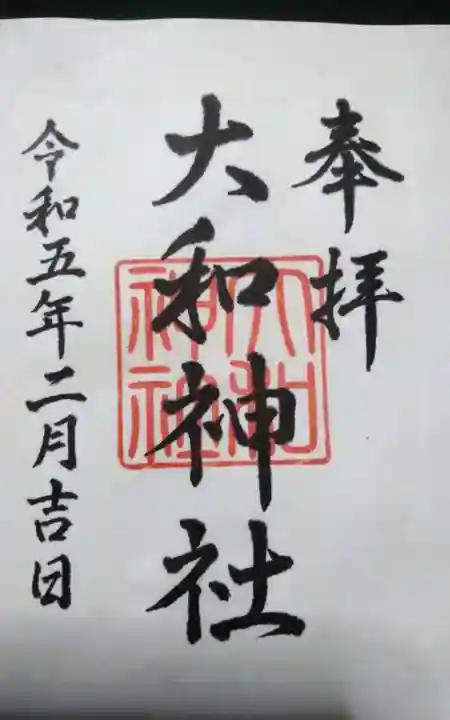 奉拝
大和神社
大和
神社
令和五年二月吉日